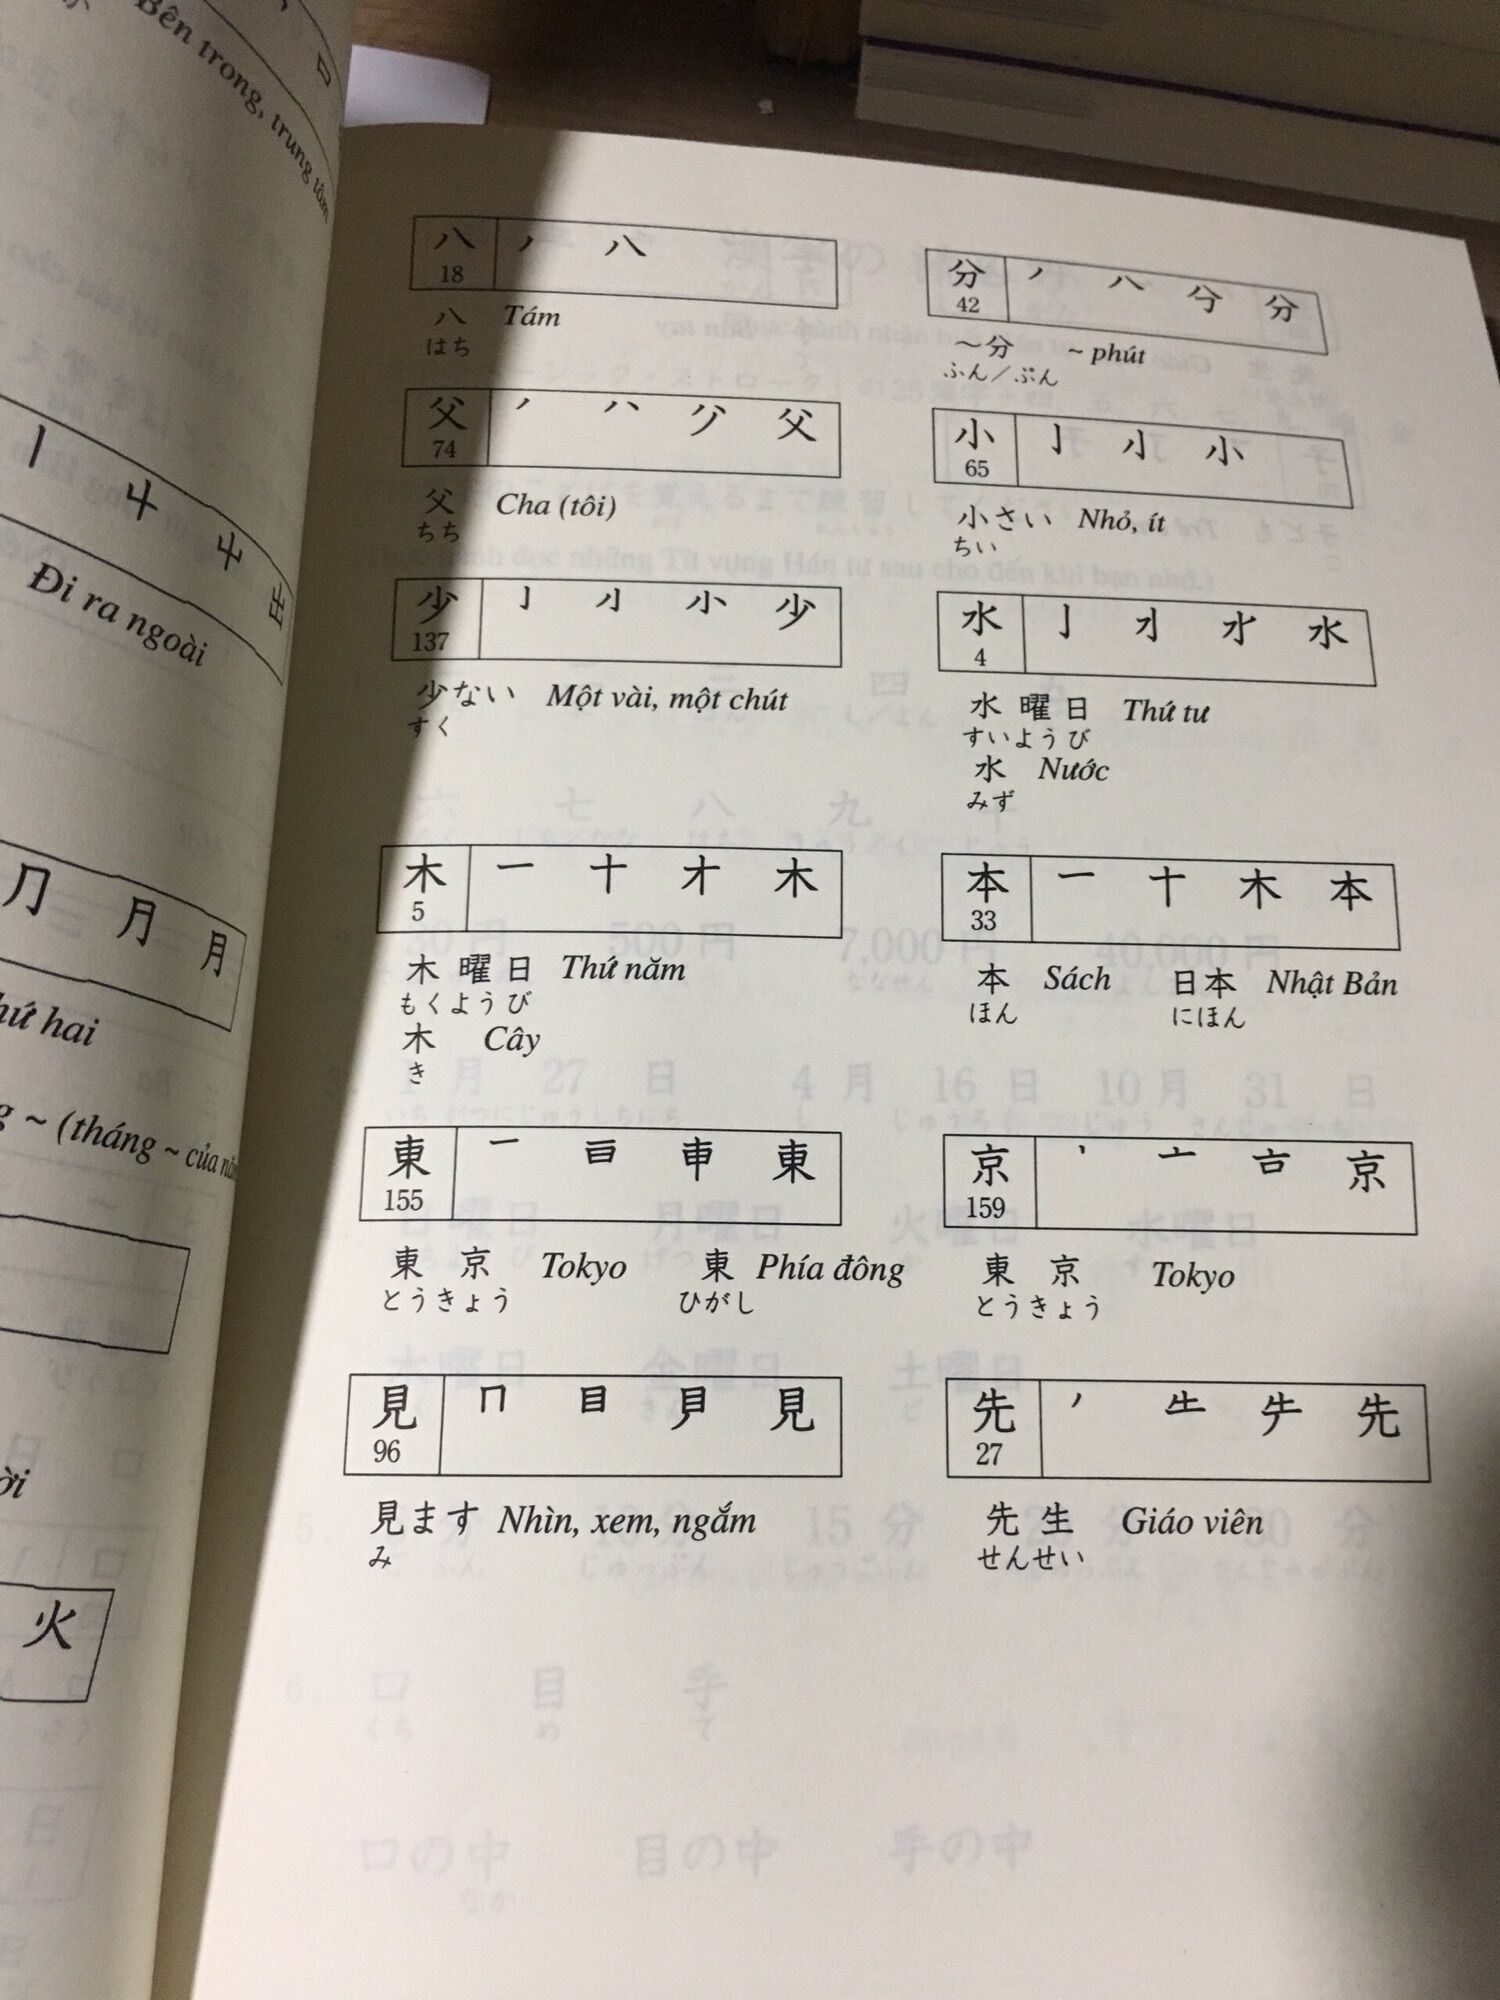 Bên trong, trung tâm
Đi ra ngoài
出
月 月
hứ hai
~ (tháng ~ của
火
八 ノ 八
18
八 Tám
はち
分 ノ 八 分 分
42
～分 ~ phút
ふん／ぷん
父 父
74
父 Cha (tôi)
ちち
小 亅 小 小
65
小さい Nhỏ, ít
ちい
少 亅 小 少
137
少ない Một vài, một chút
すく
水 亅 水
4
水曜日 Thứ tư
すいようび
水 Nước
みず
木 一 十 才 木
5
木曜日 Thứ năm
もくようび
木 Cây
き
本 一 十 木 本
33
本 Sách 日本 Nhật Bản
ほん にほん
東 一 申 東
155
東京 Tokyo 東 Phía đông
とうきょう ひがし
京 丶 亠 古 京
159
東京 Tokyo
とうきょう
見 冂 目 見
96
見ます Nhìn, xem, ngắm
み
先 ノ 先
27
先生 Giáo viên
せんせい